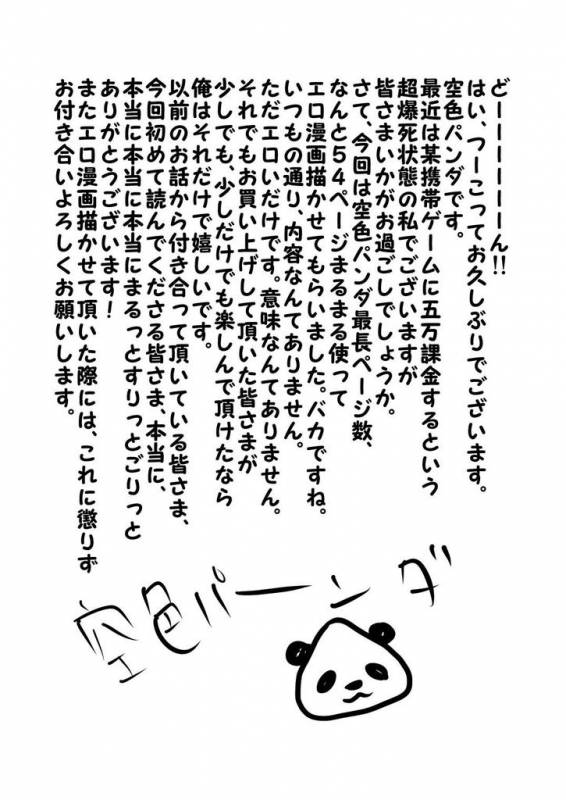 どーーーーーーん!!
はい、つーこってお久しぶりでございます。
空色パンダです。
最近は某携帯ゲームに五万課金するという
超爆死状態の私でございますが
皆さまいかがお過ごしでしょうか。
さて、今回は空色パンダ最長ページ数、
なんと54ページまるまる使って
エロ漫画描かせてもらいました。バカですね。
いつもの通り、内容なんてありません。
ただエロいだけです。意味なんてありません。
それでもお買い上げして頂いた皆さまが
少しでも、少しだけでも楽しんで頂けたなら
俺はそれだけで嬉しいです。
以前のお話から付き合って頂いている皆さま、
今回初めて読んでくださる皆さま、本当に、
本当に本当に本当にまるっとすりっとごりっと
ありがとうございます!
またエロ漫画描かせて頂いた際には、これに懲りず
お付き合いよろしくお願いします。
空色パーンダ